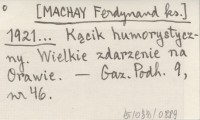 [MACHAY Ferdynand ks.]
1921... Kącik humorystycz-
ny. Wielkie zdarzenie na
Orawie. — Gaz. Podh. 9,
nr 46.